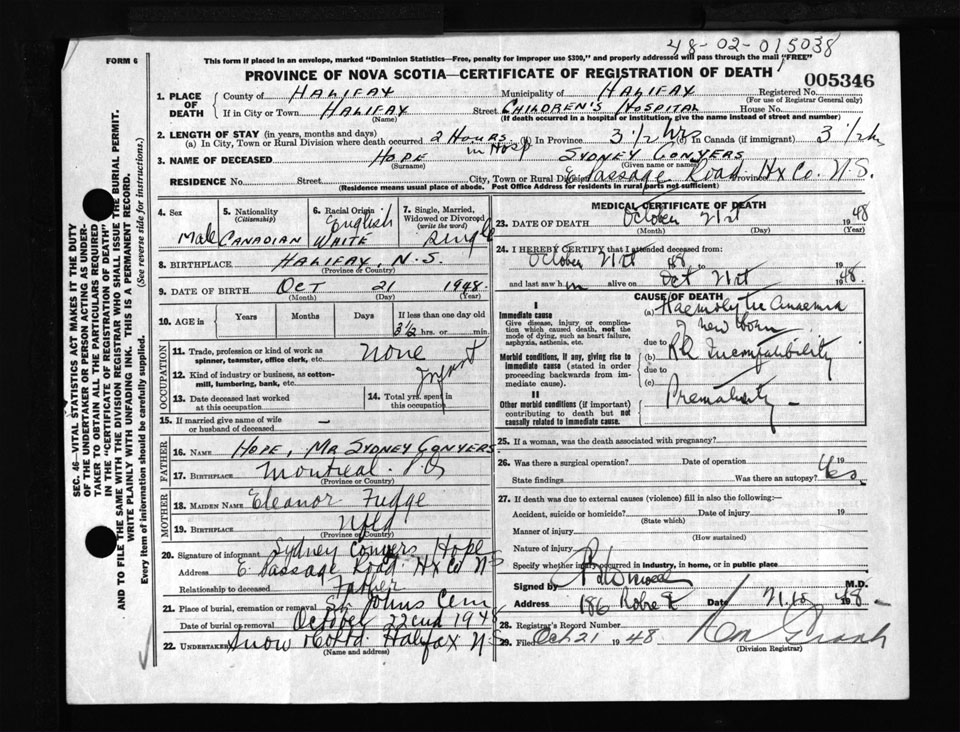 48-02-015038
FORM 6
This form if placed in an envelope, marked "Dominion Statistics—Free, penalty for improper use $300," and properly addressed will pass through the mail "FREE"
PROVINCE OF NOVA SCOTIA—CERTIFICATE OF REGISTRATION OF DEATH
005346
1. PLACE OF DEATH
County of HALIFAX Municipality of HALIFAX Registered No.
(For use of Registrar General only)
If in City or Town HALIFAX Street CHILDREN'S HOSPITAL House No.
(Name) (If death occurred in a hospital or institution, give the name instead of street and number)
2. LENGTH OF STAY (in years, months and days)
(a) In City, Town or Rural Division where death occurred 2 Hours in Hosp (b) In Province 3 1/2 hrs (c) In Canada (if immigrant) 3 1/2 hr
3. NAME OF DECEASED HOPE SYDNEY CONYERS
(Surname) (Given name or names)
RESIDENCE No. Street City, Town or Rural Division E. Passage Road Province Hx Co. N.S.
(Residence means usual place of abode. Post Office Address for residents in rural parts not sufficient)
4. Sex Male
5. Nationality (Citizenship) CANADIAN
6. Racial Origin English WHITE
7. Single, Married, Widowed or Divorced (write the word) Single
8. BIRTHPLACE HALIFAX, N.S.
(Province or Country)
9. DATE OF BIRTH OCT 21 1948
(Month) (Day) (Year)
10. AGE in Years Months Days If less than one day old
3 1/2 hrs. or min.
OCCUPATION
11. Trade, profession or kind of work as spinner, teamster, office clerk, etc. None
12. Kind of industry or business, as cotton-mill, lumbering, bank, etc. Infant
13. Date deceased last worked at this occupation
14. Total yrs. spent in this occupation
15. If married give name of wife or husband of deceased —
FATHER
16. Name HOPE, MR SYDNEY CONYERS
17. Birthplace Montreal. Q
(Province or Country)
MOTHER
18. Maiden Name Eleanor Fudge
19. Birthplace Nfld
(Province or Country)
20. Signature of informant Sydney Conyers Hope
Address E. Passage Road. Hx Co NS
Relationship to deceased Father
21. Place of burial, cremation or removal St. Johns Cem
Date of burial or removal October 22nd 1948
22. Undertaker Snow & Co Ltd. Halifax N.S
(Name and address)
MEDICAL CERTIFICATE OF DEATH
23. DATE OF DEATH October 21st 1948
(Month) (Day)
24. I HEREBY CERTIFY that I attended deceased from:
October 21st 48 to Oct 21st 1948.
and last saw him alive on 19
I
Immediate cause
Give disease, injury or complication which caused death, not the mode of dying, such as heart failure, asphyxia, asthenia, etc.
Morbid conditions, if any, giving rise to immediate cause (stated in order proceeding backwards from immediate cause).
II
Other morbid conditions (if important) contributing to death but not causally related to immediate cause.
CAUSE OF DEATH
(a) Haemolytic Anaemia of new born
due to
(b) Rh Incompatibility
due to
(c)
Prematurity —
25. If a woman, was the death associated with pregnancy?
26. Was there a surgical operation? Date of operation 19
State findings Was there an autopsy? Yes
27. If death was due to external causes (violence) fill in also the following:—
Accident, suicide or homicide? Date of injury 19
(State which)
Manner of injury
(How sustained)
Nature of injury
Specify whether injury occurred in industry, in home, or in public place
Signed by M.D.
Address 186 Date 21.10 1948
28. Registrar's Record Number
29. Filed Oct 21 1948
(Division Registrar)
SEC. 46—VITAL STATISTICS ACT MAKES IT THE DUTY OF THE UNDERTAKER OR PERSON ACTING AS UNDERTAKER TO OBTAIN ALL THE PARTICULARS REQUIRED IN THE "CERTIFICATE OF REGISTRATION OF DEATH" AND TO FILE THE SAME WITH THE DIVISION REGISTRAR WHO SHALL ISSUE THE BURIAL PERMIT.
WRITE PLAINLY WITH UNFADING INK. THIS IS A PERMANENT RECORD.
Every item of information should be carefully supplied. (See reverse side for instructions.)